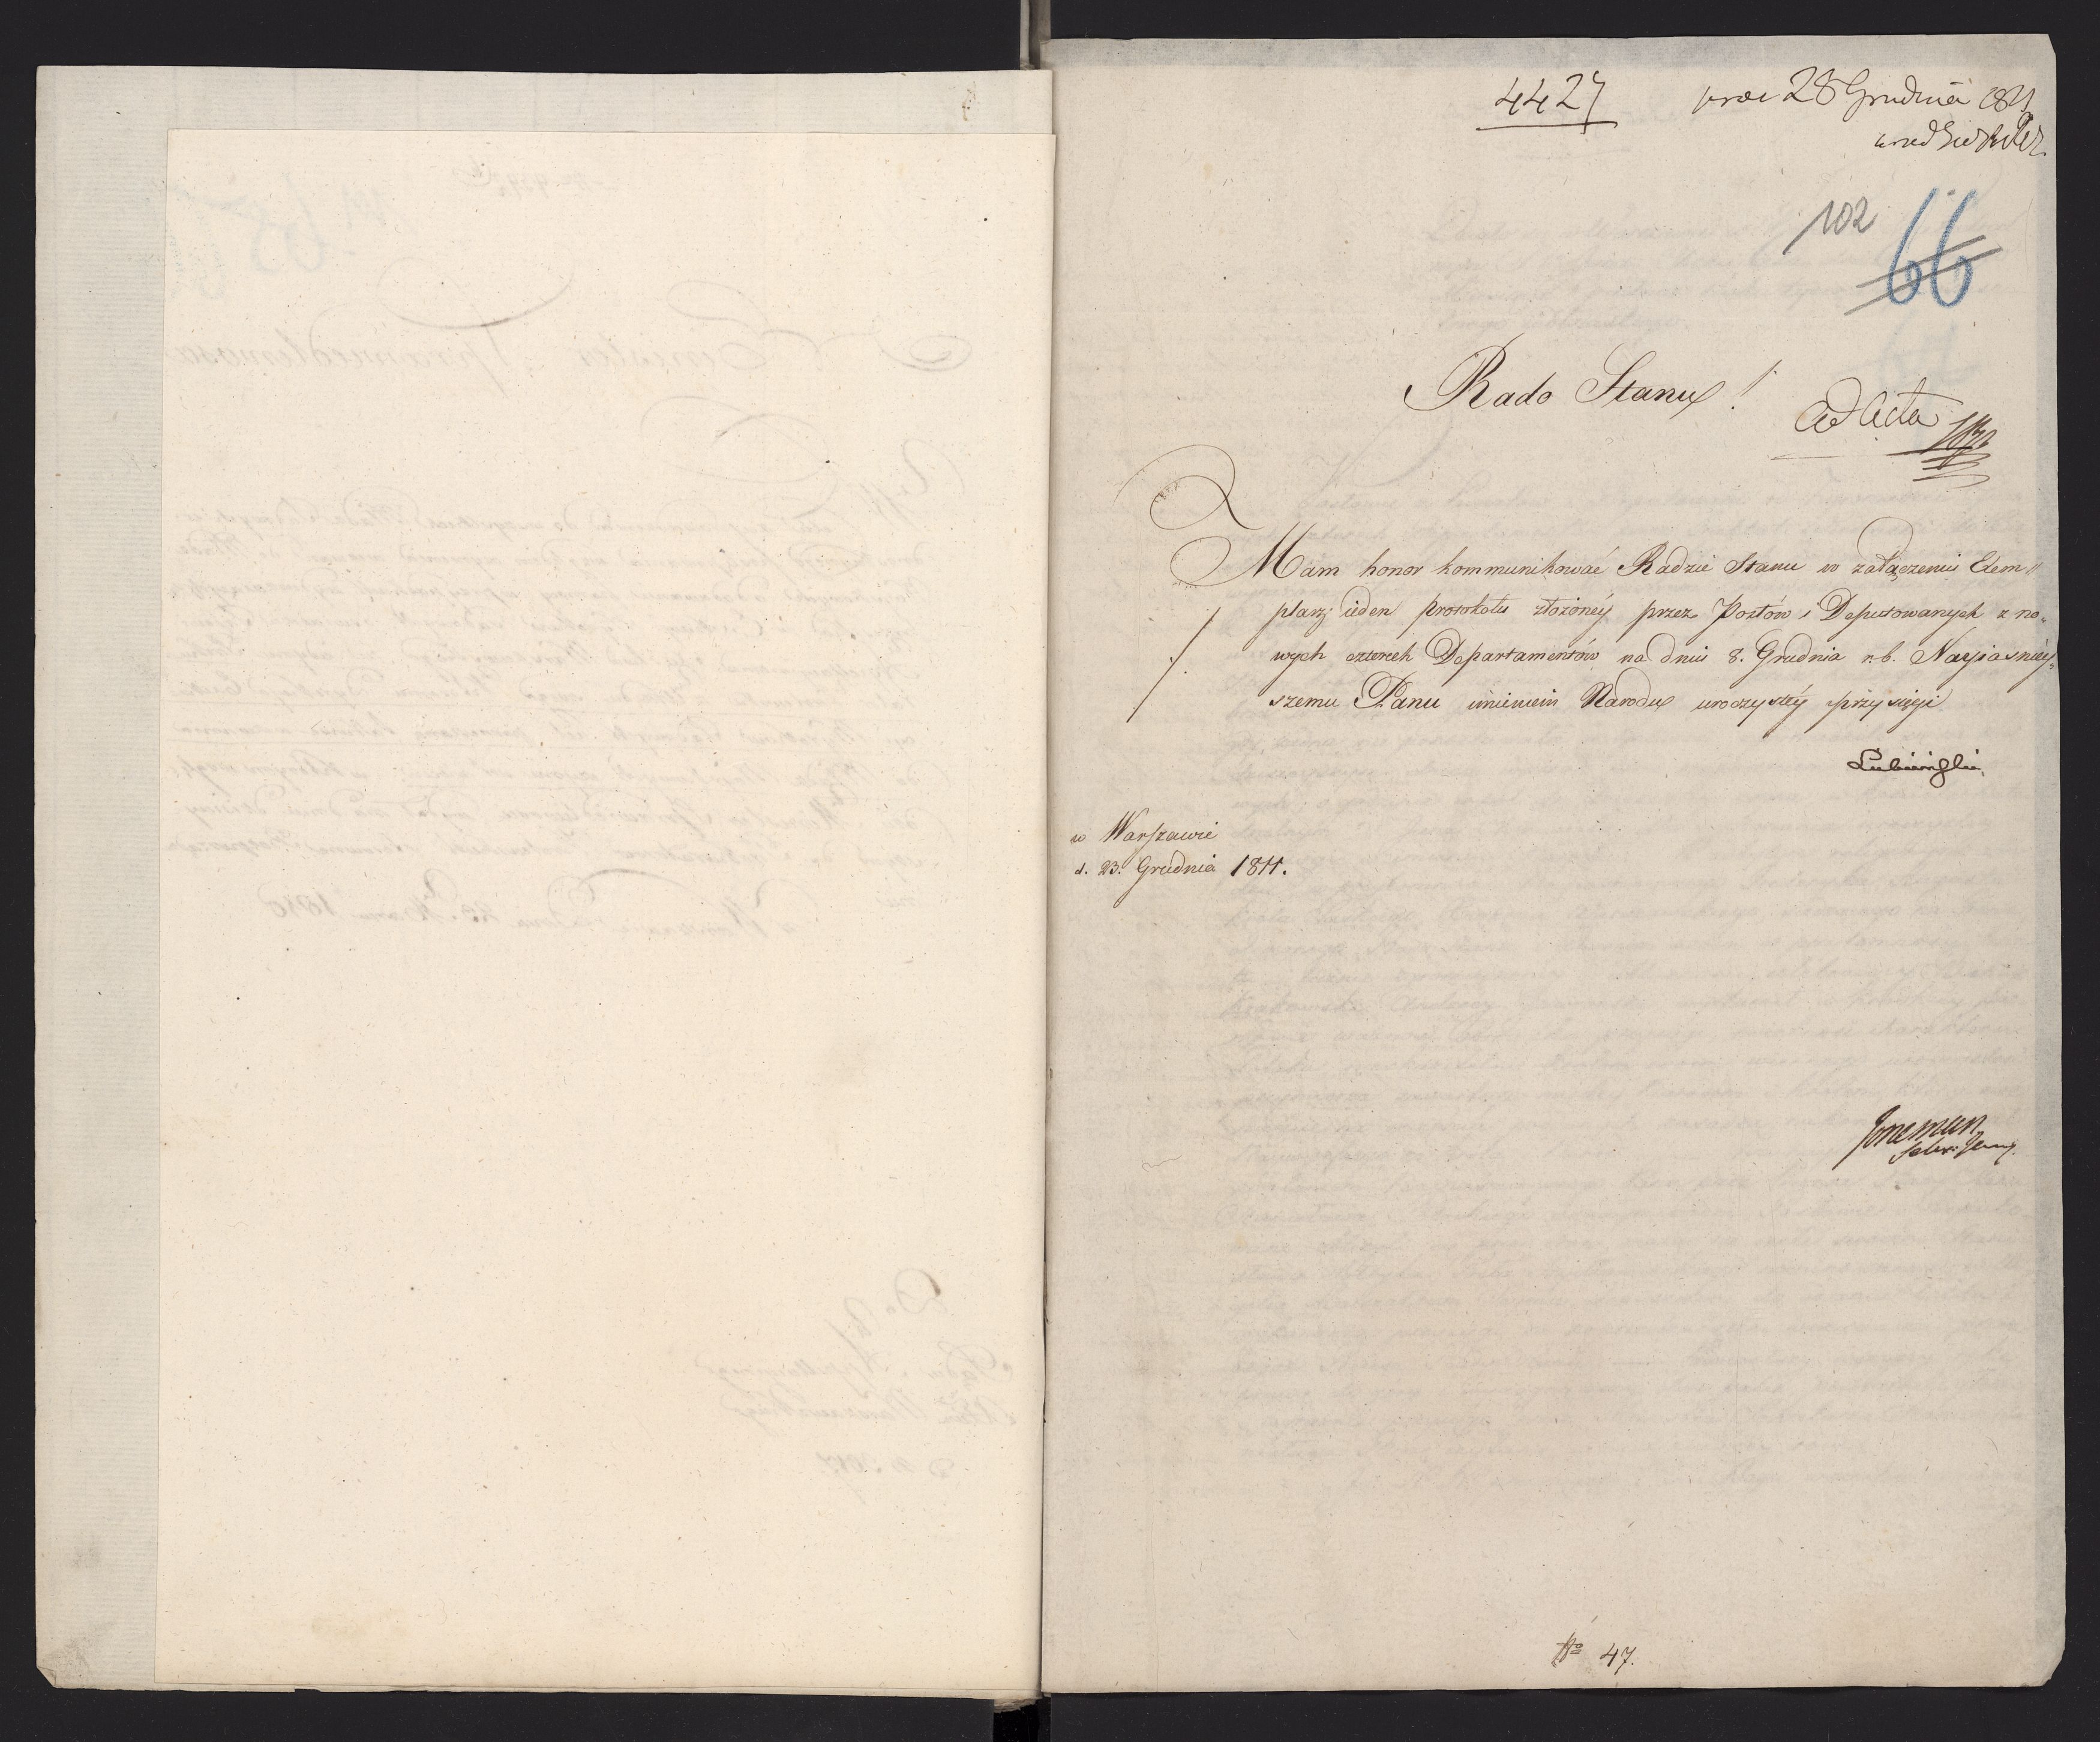 4427
prae 28 Grudnia 1811
102
66
Rado Stanu !
Ad Acta
Mam honor kommunikować Radzie Stanu w załączeniu Exem=
plarz ieden protokołu złożoney przez Posłów i Deputowanych z no=
wych czterech Departamentów na dniu 8. Grudnia r. b. Nayiaśniey=
szemu Panu imieniem Narodu uroczystéy przysięgi
Łubieński
w Warszawie
d. 23. Grudnia 1811.
No 47.